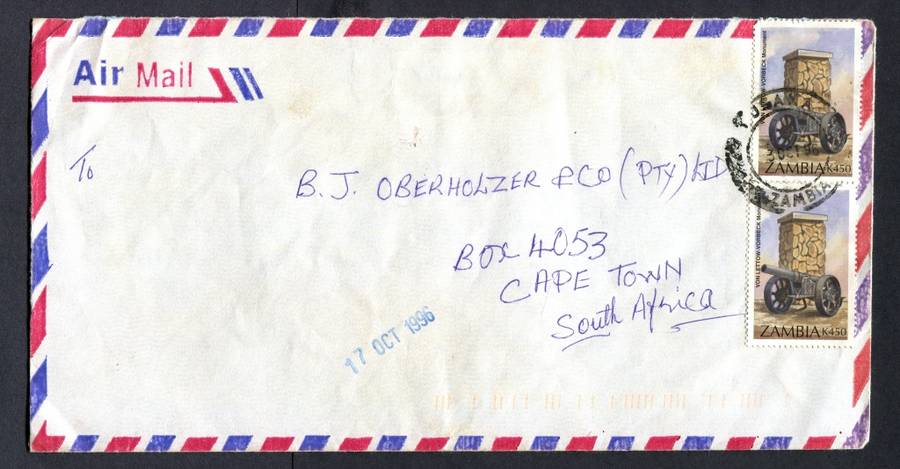 Air Mail
To
B. J. OBERHOLZER & CO (PTY) LTD
BOX 4053
CAPE TOWN
South Africa
17 OCT 1996
VON LETTOW-VORBECK Monument
ZAMBIA K450
OCT 96
ZAMBIA
VON LETTOW-VORBECK
ZAMBIA K450